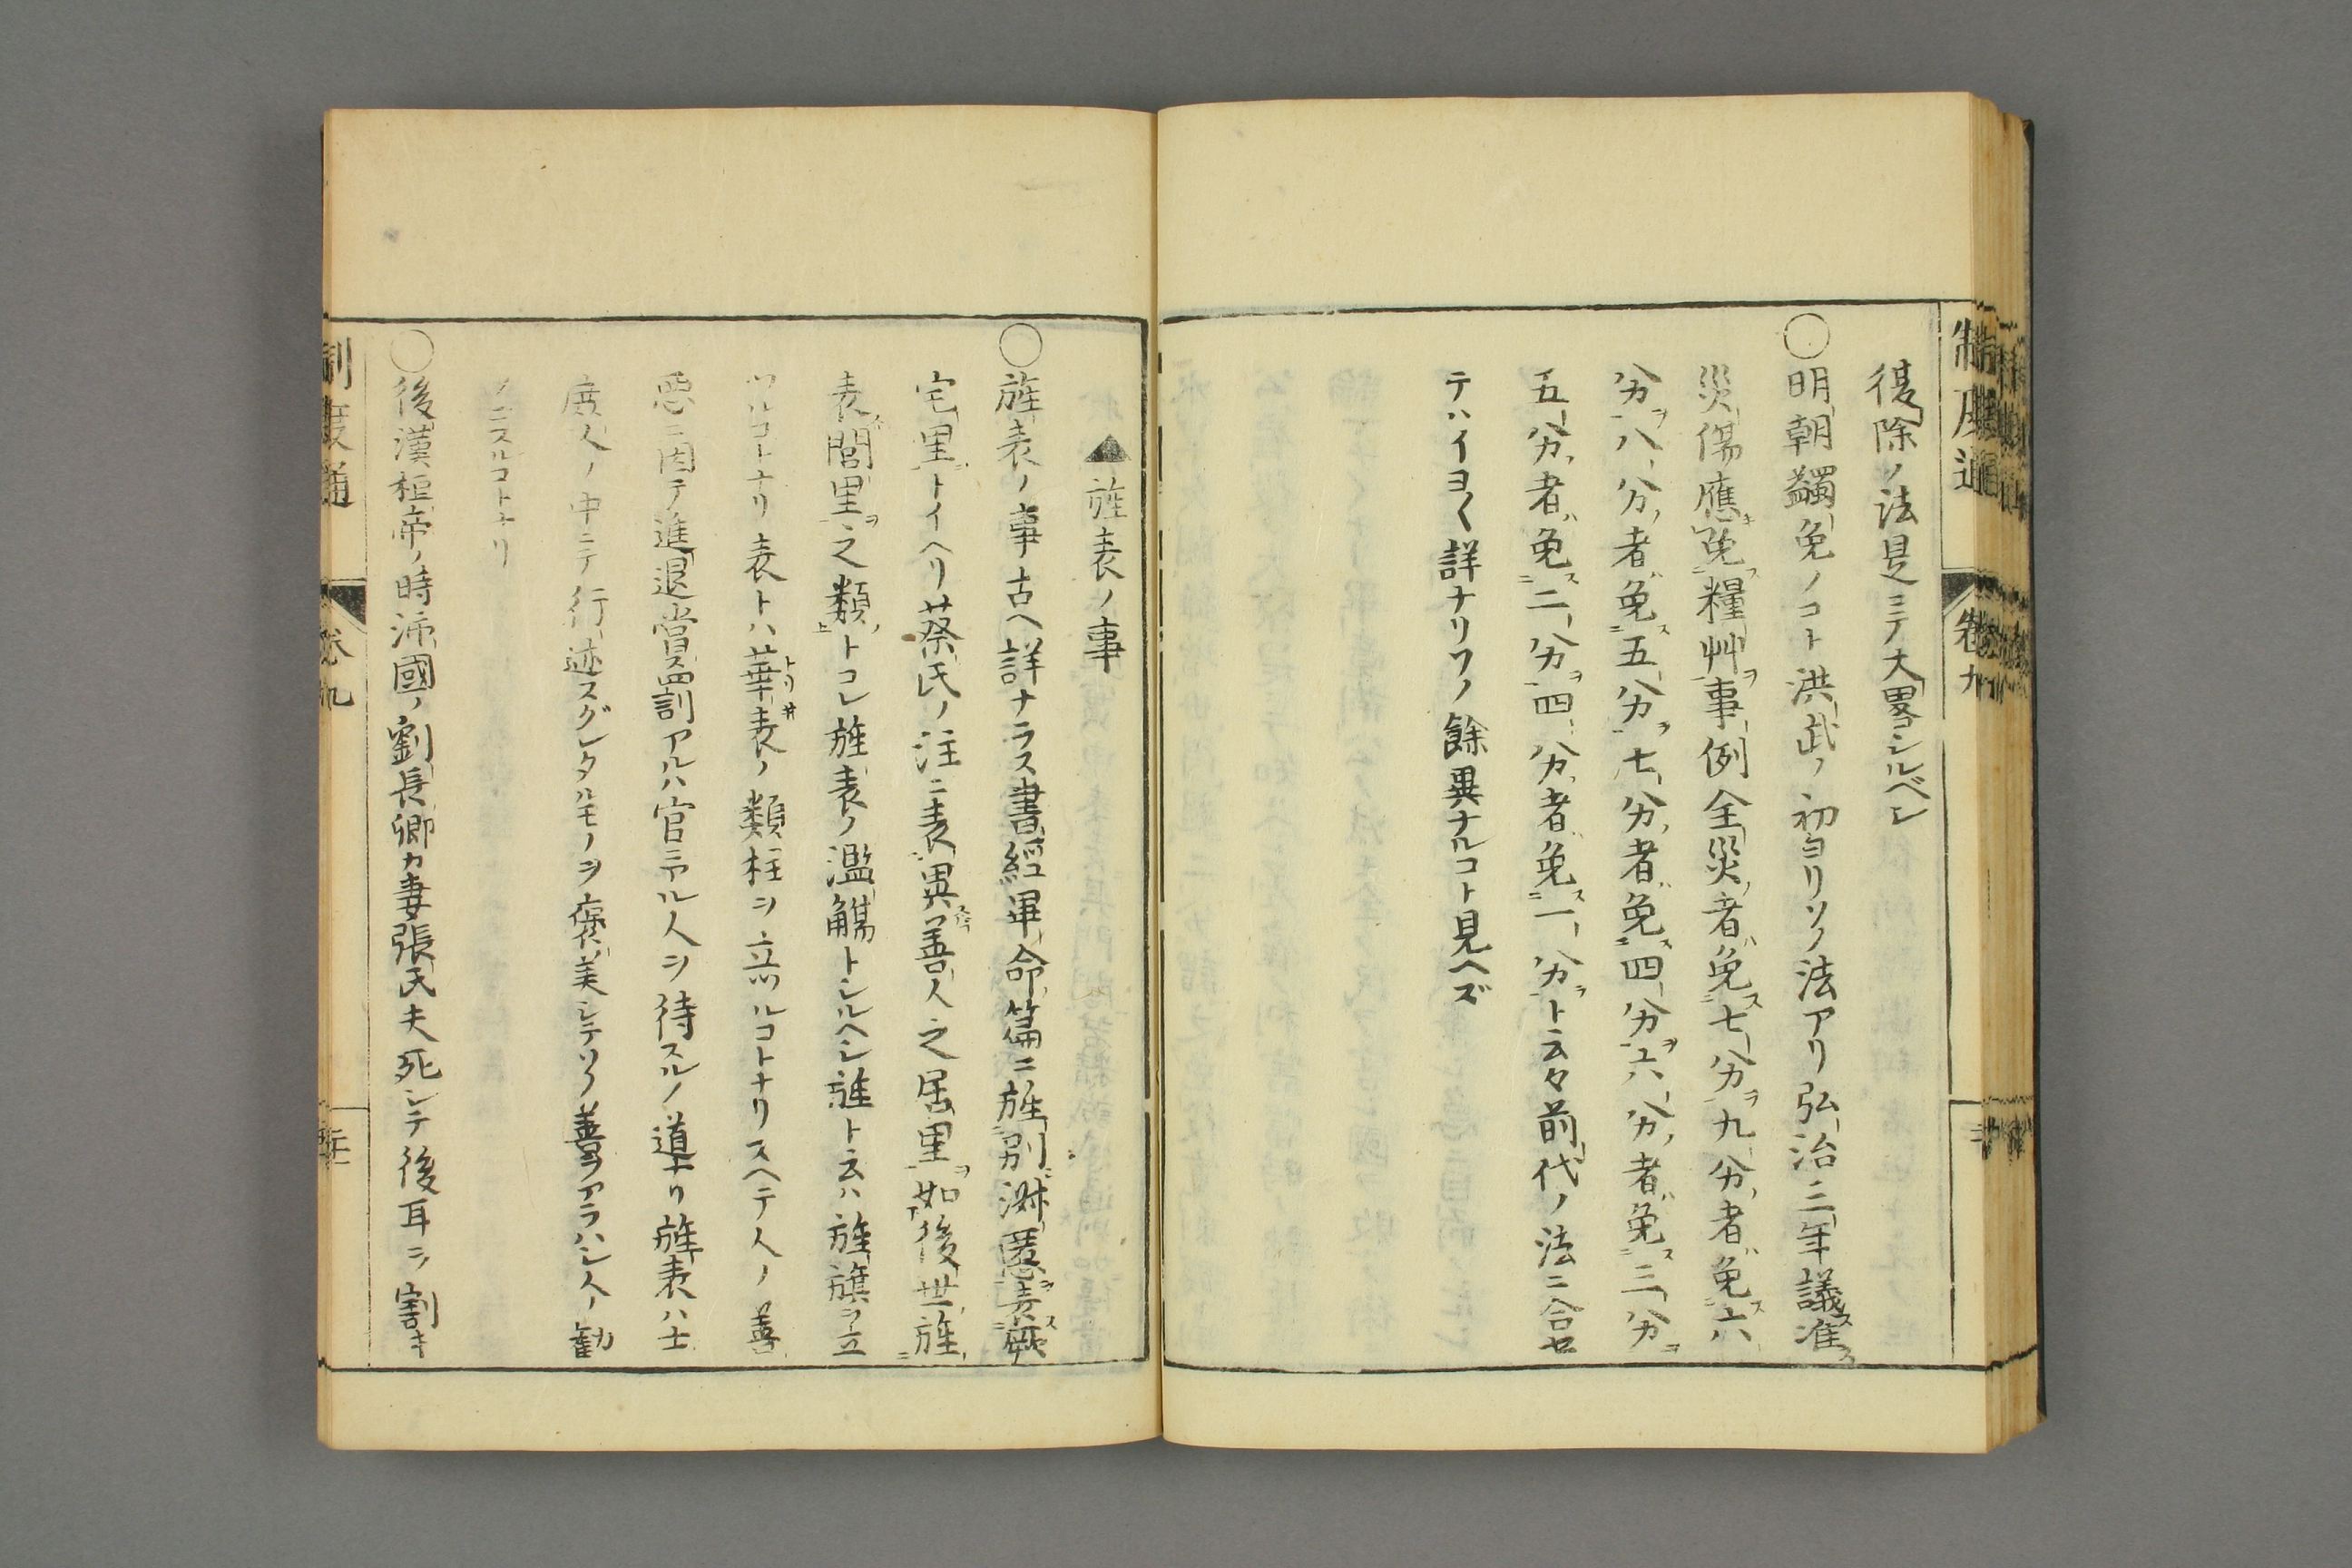 制度通
卷九
復除ノ法是ニテ大畧ヲシルベシ
〇明朝蠲免ノコト洪武ノ初ヨリソノ法アリ弘治三年議准
災傷應免糧艸事例全災者免七分九分者免六
分八分者免五分七分者免四分六分者免三分
五分者免二分四分者免一分ト云々前代ノ法ニ合セ
テハイヨ〱詳ナリソノ餘異ナルコト見ヘズ
▲旌表ノ事
〇旌表ノ事古ヘ詳ナラス書經畢命篇ニ旌別淑慝表厥
宅里トイヘリ蔡氏ノ注ニ表異善人之居里如後世旌
表門閭之類トコレ旌表ノ濫觴トシルヘシ旌ト云ハ旌旗ヲ立
ツルコトナリ表トハ華表ノ類柱ヲ立ツルコトナリスヘテ人ノ善
惡ニ因テ進退賞罰アルハ官ニアル人ヲ待スルノ道ナリ旌表ハ士
庶人ノ中ニテ行迹スグレタルモノヲ褒美シテソノ善ヲアラハシ人ノ勸
ノニスルコトナリ
〇後漢桓帝ノ時沛國ノ劉長卿カ妻張氏夫死シテ後耳ヲ割キ
制度通
卷九